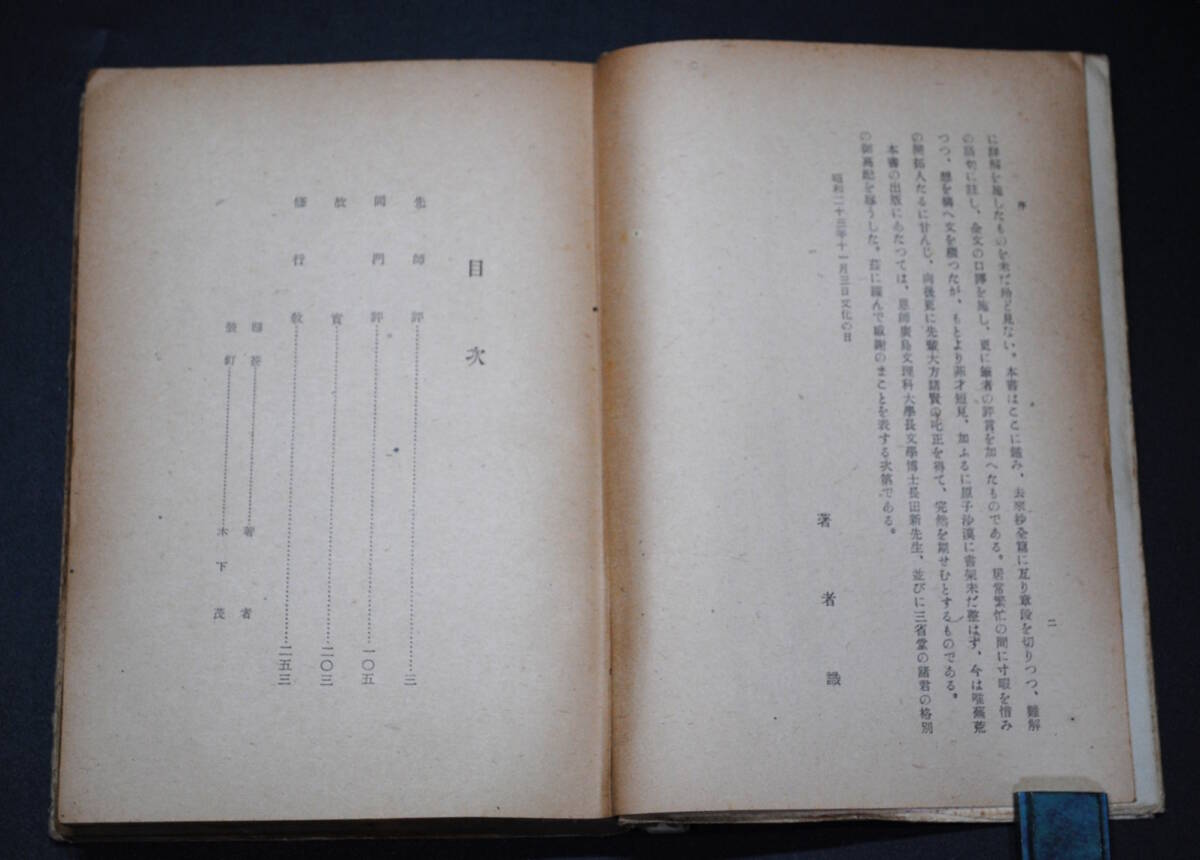 序
二
に詳解を施したものを未だ殆ど見ない。本書はここに鑑み、去来抄全篇に亙り章段を切りつつ、難解
の語句に註し、全文の口譯を施し、更に筆者の評賞を加へたものである。居常繁忙の間に寸暇を惜み
つつ、想を構へ文を綴つたが、もとより菲才短見、加ふるに原子沙漠に書架未だ整はず、今は唯蕪荒
の開拓人たるに甘んじ、向後更に先輩大方諸賢の叱正を得て、完然を期せむとするものである。
本書の出版にあたつては、恩師廣島文理科大學長文學博士長田新先生、並びに三省堂の諸君の格別
の御高配を辱うした。茲に謹んで感謝のまことを表する次第である。
昭和二十三年十一月三日文化の日
著者識
目次
先師評……三
同門評……一〇五
故實……二〇三
修行教……二五三
題簽……著者
裝釘……木下茂